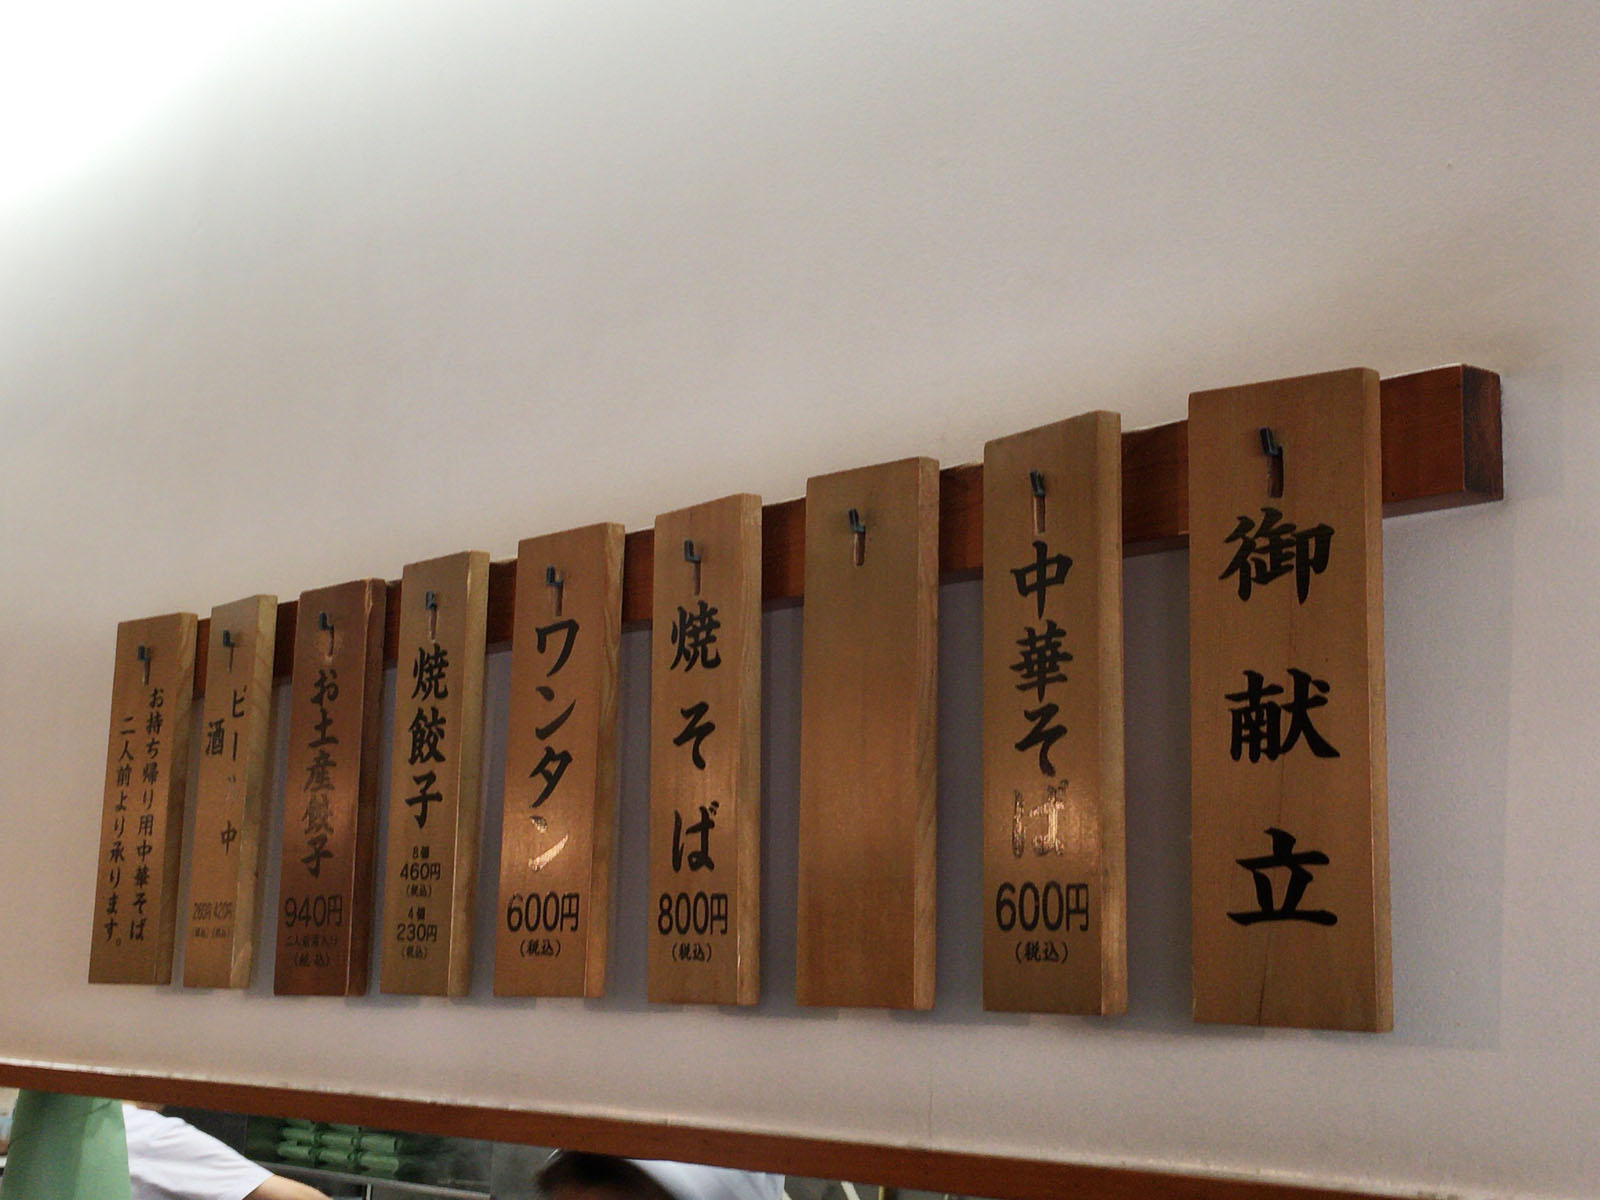 御献立
中華そば
600円
(税込)
焼そば
800円
(税込)
ワンタン
600円
(税込)
焼餃子
8個
460円
(税込)
4個
230円
(税込)
お土産餃子
940円
(税込)
ビール 中
酒
420円
(税込)
(税込)
お持ち帰り用中華そば
二人前より承ります。